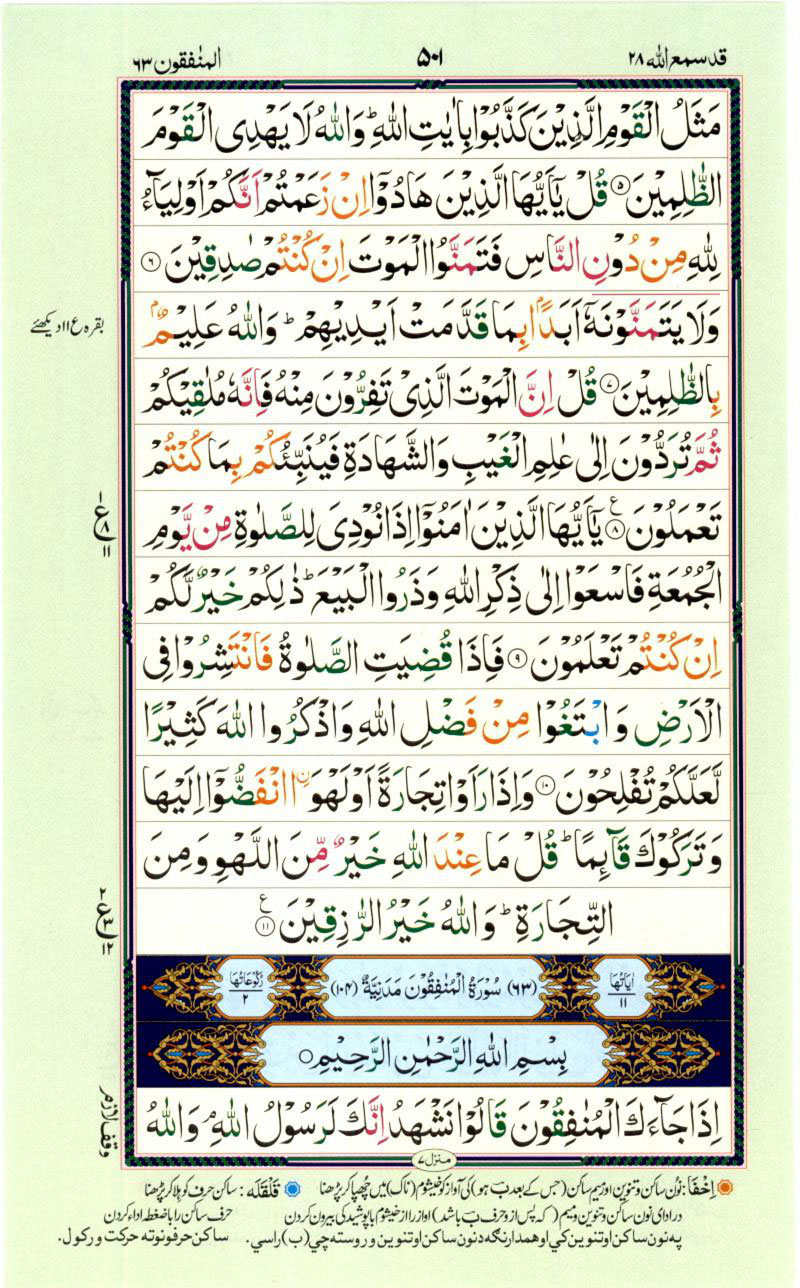 قد سمع الله ۲۸
۵۰۱
المنٰفقون ۶۳
مَثَلُ الْقَوْمِ الَّذِیْنَ كَذَّبُوْا بِاٰیٰتِ اللّٰهِ ؕ وَاللّٰهُ لَا یَهْدِی الْقَوْمَ
الظّٰلِمِیْنَ ۝۵ قُلْ یٰۤاَیُّهَا الَّذِیْنَ هَادُوْۤا اِنْ زَعَمْتُمْ اَنَّكُمْ اَوْلِیَآءُ
لِلّٰهِ مِنْ دُوْنِ النَّاسِ فَتَمَنَّوُا الْمَوْتَ اِنْ كُنْتُمْ صٰدِقِیْنَ ۝۶
وَلَا یَتَمَنَّوْنَهٗۤ اَبَدًۢا بِمَا قَدَّمَتْ اَیْدِیْهِمْ ؕ وَاللّٰهُ عَلِیْمٌۢ
بقره ع ۱۱ دیکھئے
بِالظّٰلِمِیْنَ ۝۷ قُلْ اِنَّ الْمَوْتَ الَّذِیْ تَفِرُّوْنَ مِنْهُ فَاِنَّهٗ مُلٰقِیْكُمْ
ثُمَّ تُرَدُّوْنَ اِلٰی عٰلِمِ الْغَیْبِ وَالشَّهَادَةِ فَیُنَبِّئُكُمْ بِمَا كُنْتُمْ
تَعْمَلُوْنَ ۝۸ع یٰۤاَیُّهَا الَّذِیْنَ اٰمَنُوْۤا اِذَا نُوْدِیَ لِلصَّلٰوةِ مِنْ یَّوْمِ
۱ ع ۸ ۱۱
الْجُمُعَةِ فَاسْعَوْا اِلٰی ذِكْرِ اللّٰهِ وَذَرُوا الْبَیْعَ ؕ ذٰلِكُمْ خَیْرٌ لَّكُمْ
اِنْ كُنْتُمْ تَعْلَمُوْنَ ۝۹ فَاِذَا قُضِیَتِ الصَّلٰوةُ فَانْتَشِرُوْا فِی
الْاَرْضِ وَابْتَغُوْا مِنْ فَضْلِ اللّٰهِ وَاذْكُرُوا اللّٰهَ كَثِیْرًا
لَّعَلَّكُمْ تُفْلِحُوْنَ ۝۱۰ وَاِذَا رَاَوْا تِجَارَةً اَوْ لَهْوَا ِ۟انْفَضُّوْۤا اِلَیْهَا
وَتَرَكُوْكَ قَآئِمًا ؕ قُلْ مَا عِنْدَ اللّٰهِ خَیْرٌ مِّنَ اللَّهْوِ وَمِنَ
التِّجَارَةِ ؕ وَاللّٰهُ خَیْرُ الرّٰزِقِیْنَ ۝۱۱ع
۲ ع ۳ ۱۲
اٰیَاتُهَا ۱۱
(۶۳) سُوْرَةُ الْمُنٰفِقُوْنَ مَدَنِیَّةٌ (۱۰۴)
رُكُوْعَاتُهَا ۲
بِسْمِ اللّٰهِ الرَّحْمٰنِ الرَّحِیْمِ ۝
اِذَا جَآءَكَ الْمُنٰفِقُوْنَ قَالُوْا نَشْهَدُ اِنَّكَ لَرَسُوْلُ اللّٰهِ ۘ وَاللّٰهُ
وقف لازم
منزل ۷
اِخفَا: نون ساکن و تنوین اور میم ساکن (جس کے بعد ب ہو) کی آواز کو خیشوم (ناک) میں چھپا کر پڑھنا
قَلقَلَه: ساکن حرف کو ہلا کر پڑھنا
در ادای نون ساکن و تنوین و میم (که پس از و حرف ب باشد) آواز را از خیشوم با پوشیدگی بیرون کردن
حرف ساکن را با ضغطه اداء کردن
په نون ساکن او تنوین کي او همدارنګه د نون ساکن او تنوین وروسته چي (ب) راسي.
ساکن حرفونو ته حرکت ورکول.